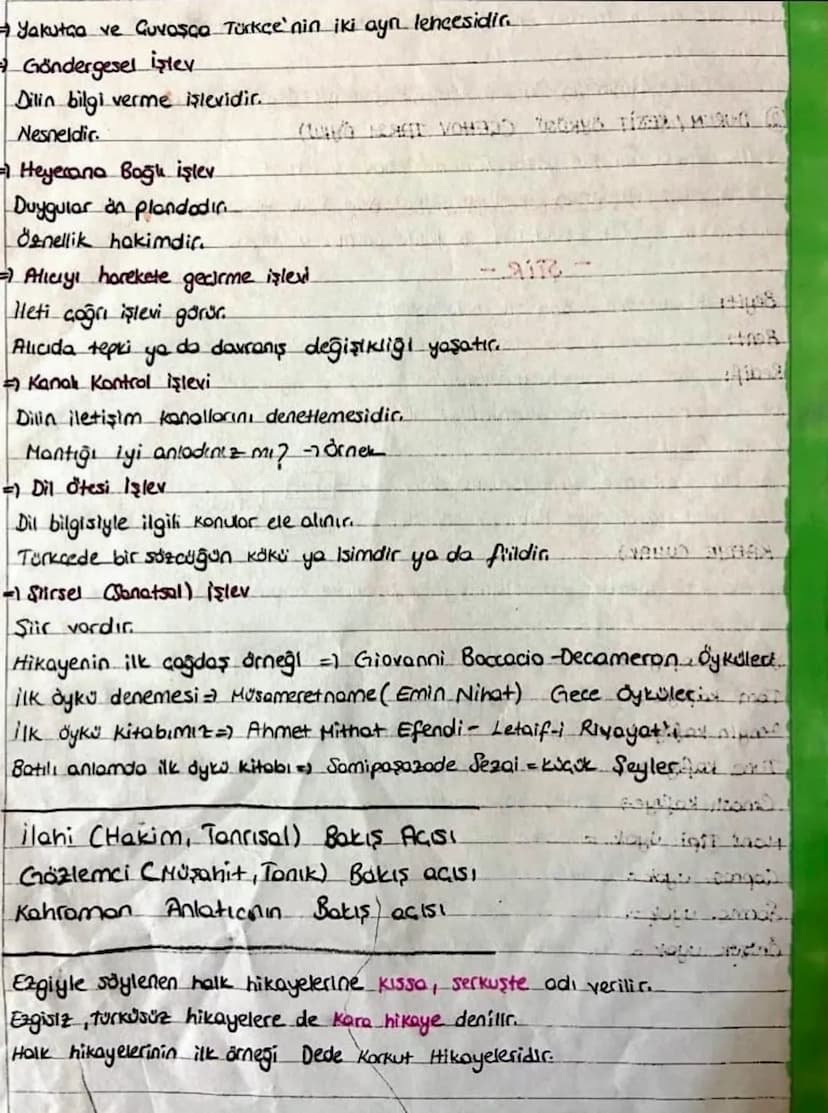 ⇒ Yakutça ve Çuvaşça Türkçe'nin iki ayrı lehçesidir.
⇒ Göndergesel İşlev
Dilin bilgi verme işlevidir.
Nesneldir.
⇒ Heyecana Bağlı işlev
Duygular ön plandadır.
Öznellik hakimdir.
⇒ Alıcıyı harekete geçirme işlevi
İleti çağrı işlevi görür.
Alıcıda tepki ya da davranış değişikliği yaşatır.
⇒ Kanalı Kontrol işlevi
Dilin iletişim kanallarını denetlemesidir.
Mantığı iyi anladınız mı? → örnek
⇒ Dil Ötesi İşlev
Dil bilgisiyle ilgili konular ele alınır.
Türkçede bir sözcüğün kökü ya isimdir ya da fiildir.
⇒ Şiirsel (Sanatsal) İşlev
Şiir vardır.
Hikayenin ilk çağdaş örneği ⇒ Giovanni Boccacio - Decameron Öyküleri
İlk öykü denemesi ⇒ Müsameretname (Emin Nihat) Gece Öyküleri
İlk öykü kitabımız ⇒ Ahmet Mithat Efendi - Letaif-i Rivayat
Batılı anlamda ilk öykü kitabı ⇒ Samipaşazade Sezai = Küçük Şeyler
İlahi (Hakim, Tanrısal) Bakış Açısı
Gözlemci (Müşahit, Tanık) Bakış açısı
Kahraman Anlatıcının Bakış açısı
Ezgiyle söylenen halk hikayelerine kıssa, serküşte adı verilir.
Ezgisiz, türküsüz hikayelere de kara hikaye denilir.
Halk hikayelerinin ilk örneği Dede Korkut Hikayeleridir.